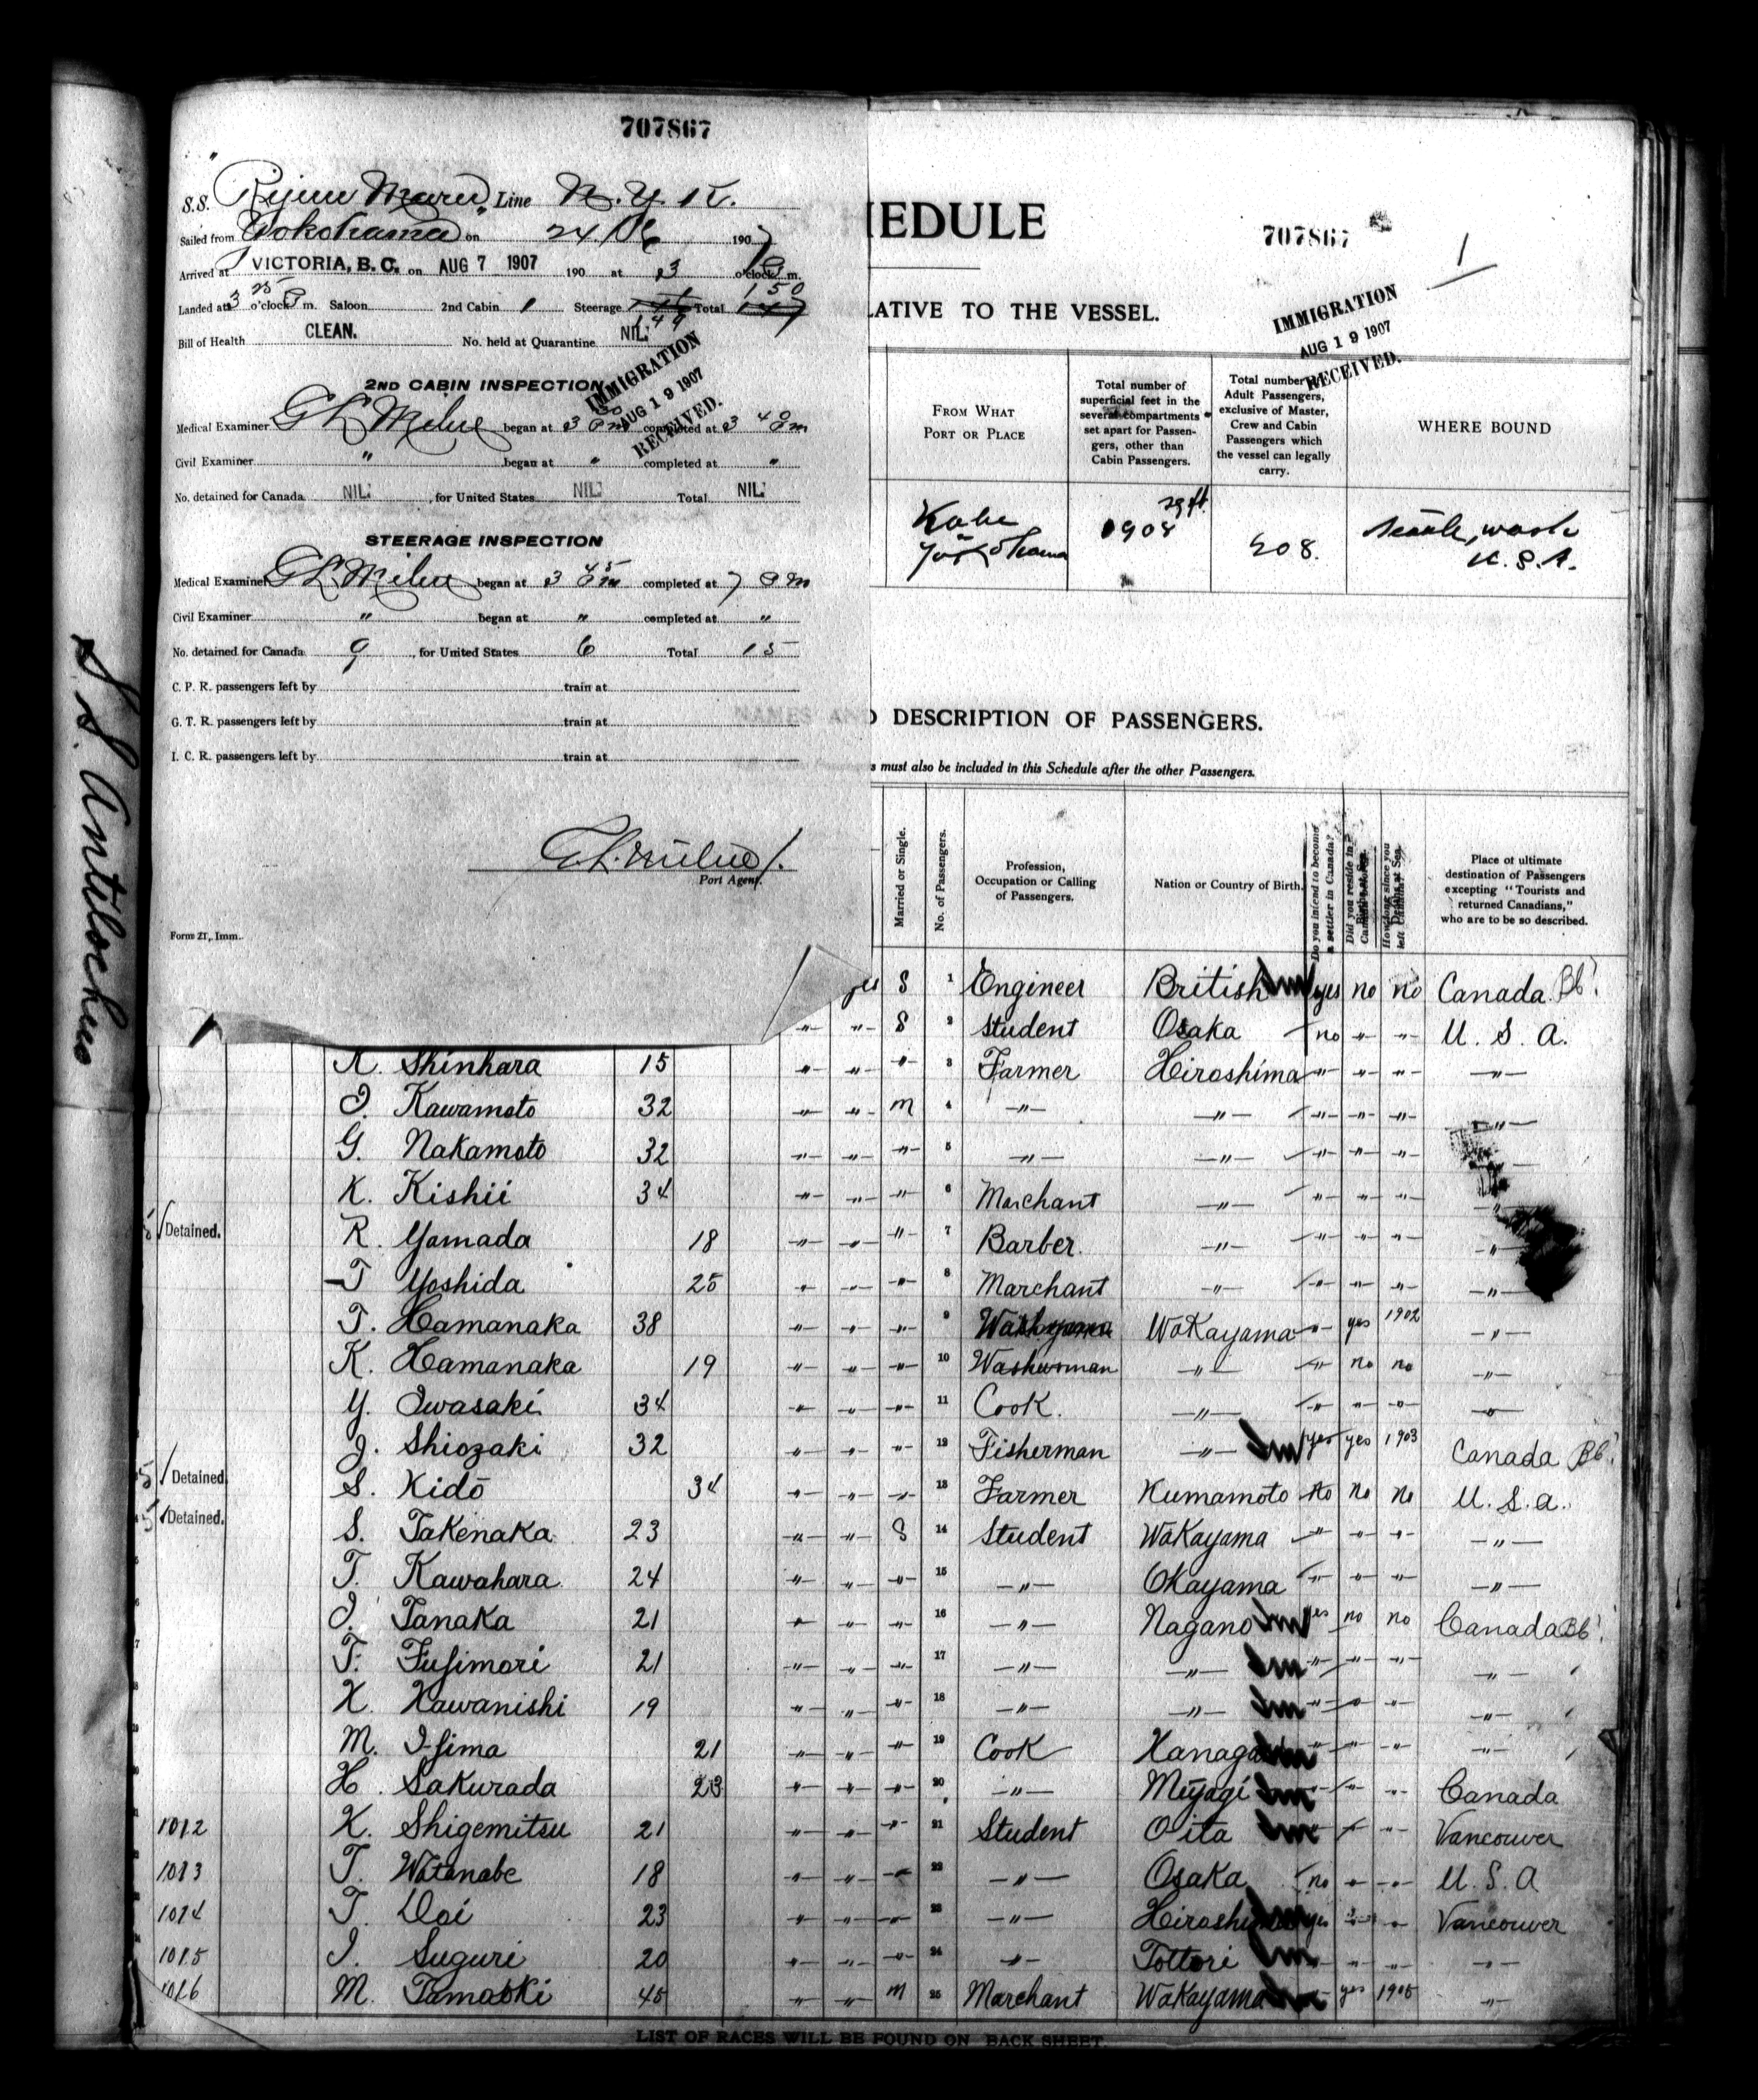 707867
S.S. "Rijun Maru" Line N. Y. K.
Sailed from Yokohama on 24/06 1907
Arrived at VICTORIA, B. C. on AUG 7 1907 190 at 3 o'clock P m.
Landed at 3 25 o'clock P m. Saloon 2nd Cabin 1 Steerage 149 Total 150
Bill of Health CLEAN. No. held at Quarantine NIL:
IMMIGRATION
AUG 19 1907
RECEIVED.
2ND CABIN INSPECTION
Medical Examiner G L Milne began at 3 30 Pm completed at 3 40 Pm
Civil Examiner " began at " completed at "
No. detained for Canada NIL: , for United States NIL: Total NIL:
STEERAGE INSPECTION
Medical Examiner G L Milne began at 3 45 Pm completed at 7 Pm
Civil Examiner " began at " completed at "
No. detained for Canada 9 , for United States 6 Total 15
C. P. R. passengers left by train at
G. T. R. passengers left by train at
I. C. R. passengers left by train at
G. L. Milne
Port Agent.
Form 21, Imm.
S. S. Antilochus
HEDULE
707867
1
LATIVE TO THE VESSEL.
IMMIGRATION
AUG 19 1907
RECEIVED.
FROM WHAT PORT OR PLACE
Total number of superficial feet in the several compartments set apart for Passengers, other than Cabin Passengers.
Total number Adult Passengers, exclusive of Master, Crew and Cabin Passengers which the vessel can legally carry.
WHERE BOUND
Kobe Yokohama 908 sq ft. 508. Seattle, Wash U. S. A.
NAMES AND DESCRIPTION OF PASSENGERS.
s must also be included in this Schedule after the other Passengers.
Married or Single.
No. of Passengers.
Profession, Occupation or Calling of Passengers.
Nation or Country of Birth.
Do you intend to become a settler in Canada?
Did you reside in Canada
How long since you left Canada?
Place of ultimate destination of Passengers excepting "Tourists and returned Canadians," who are to be so described.
yes S 1 Engineer British yes no no Canada
-"- -"- S 2 Student Osaka no -"- -"- U. S. A.
Shinhara 15 -"- -"- -"- 3 Farmer Hiroshima -"- -"- -"- -"-
Kawamoto 32 -"- -"- m 4 -"- -"- -"- -"- -"- -"-
G. Nakamoto 32 -"- -"- -"- 5 -"- -"- -"- -"- -"-
K. Kishii 34 -"- -"- -"- 6 Marchant -"- -"- -"- -"- -"-
Detained. R. Yamada 18 -"- -"- -"- 7 Barber. -"- -"- -"- -"- -"-
T Yoshida 25 -"- -"- -"- 8 Marchant -"- -"- -"- -"- -"-
T. Hamanaka 38 -"- -"- -"- 9 Wakayama -"- yes 1902 -"-
K. Hamanaka 19 -"- -"- -"- 10 Washwoman -"- -"- no no -"-
Y. Iwasaki 34 -"- -"- -"- 11 Cook. -"- -"- -"- -"- -"-
J. Shiozaki 32 -"- -"- -"- 12 Fisherman -"- yes yes 1903 Canada
Detained. S. Kidō 34 -"- -"- -"- 13 Farmer Kumamoto No No No U. S. A.
Detained. S. Takenaka 23 -"- -"- S 14 Student Wakayama -"- -"- -"- -"-
T. Kawahara 24 -"- -"- -"- 15 -"- Okayama -"- -"- -"- -"-
I. Tanaka 21 -"- -"- -"- 16 -"- Nagano yes no no Canada
T. Fujimori 21 -"- -"- -"- 17 -"- -"- -"- -"- -"- -"-
K. Kawanishi 19 -"- -"- -"- 18 -"- -"- -"- -"- -"- -"-
M. Ijima 21 -"- -"- -"- 19 Cook -"- -"- -"- -"-
H. Sakurada 23 -"- -"- -"- 20 -"- Miyagi -"- -"- -"- Canada
1012 K. Shigemitsu 21 -"- -"- -"- 21 Student Oita -"- -"- -"- Vancouver
1013 T. Watanabe 18 -"- -"- -"- 22 -"- Osaka no -"- -"- U. S. A
1014 T. Doi 23 -"- -"- -"- 23 -"- Hiroshima yes -"- -"- Vancouver
1015 I. Suguri 20 -"- -"- -"- 24 -"- Tottori -"- -"- -"- -"-
1016 M. Tamaoki 45 -"- -"- m 25 Marchant Wakayama -"- yes 1905 -"-
LIST OF RACES WILL BE FOUND ON BACK SHEET.